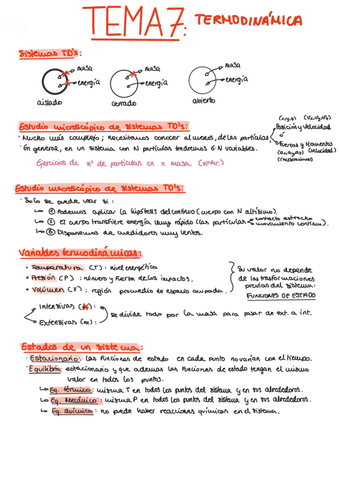 TEMA 7: TERMODINÁMICA
Sistemas TD's:
masa masa masa
energía energía energía
aislado cerrado abierto
Estudio microscópico de sistemas TD's:
· Mucho más complejo; necesitamos conocer al menos, de las partículas
Posición y velocidad
ó
Fuerzas y Momentos
(velocidad)
· En general, en un sistema con N partículas tendremos 6N variables.
Ejercicios de nº de partículas en x masa
Estudio macroscópico de sistemas TD's:
· Solo se puede usar si:
① Podemos aplicar la hipótesis del continuo (cuerpo con N altísimo).
② El cuerpo transfiere energía muy rápido (las partículas contacto estrecho movimiento continuo).
③ Disponemos de medidores muy lentos.
Variables termodinámicas:
· Temperatura (T): nivel energético
· Presión (P): número y fuerza de los impactos.
· Volumen (V): región promedio de espacio ocupada.
Su valor no depende
de las trasformaciones
previas del sistema.
FUNCIONES DE ESTADO
· Intensivas
· Extensivas (m):
se divide todo por la masa para pasar de ext. a int.
Estados de un sistema:
· Estacionario: las funciones de estado en cada punto no varían con el tiempo.
· Equilibrio: estacionario y que además las funciones de estado tengan el mismo
valor en todos los puntos.
Eq. térmico: misma T en todos los puntos del sistema y en sus alrededores.
Eq. Mecánico: misma P en todos los puntos del sistema y en sus alrededores.
Eq. químico: no puede haber reacciones químicas en el sistema.